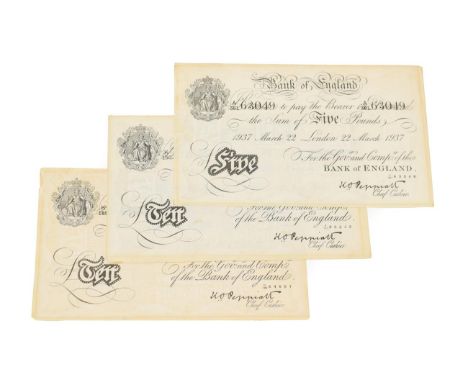 Bank of England
63049 to pay the Bearer 63049
the Sum of Five Pounds
1937 March 22 London 22 March 1937
For the Gov.r and Comp.a of the
Five BANK OF ENGLAND
K O Peppiatt
Chief Cashier
For the Gov.r and Comp.a
Ten of the Bank of England
K O Peppiatt
Chief Cashier
For the Gov.r and Comp.a
Ten of the Bank of England
K O Peppiatt
Chief Cashier